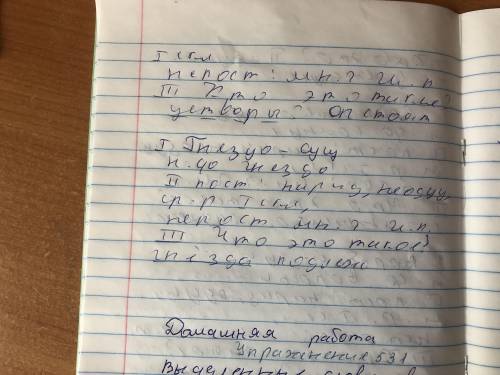 I скл
непост: мн. ч и. п
III Кто это такие?
Они стоят
I Гнездо - сущ
н. до гнездо
II пост: нариц, неодуш,
ср. р I скл,
непост мн. ч и. п.
III Что это такое?
гнёзда подлеж
Домашняя работа
Упражнение 531
Выделенные